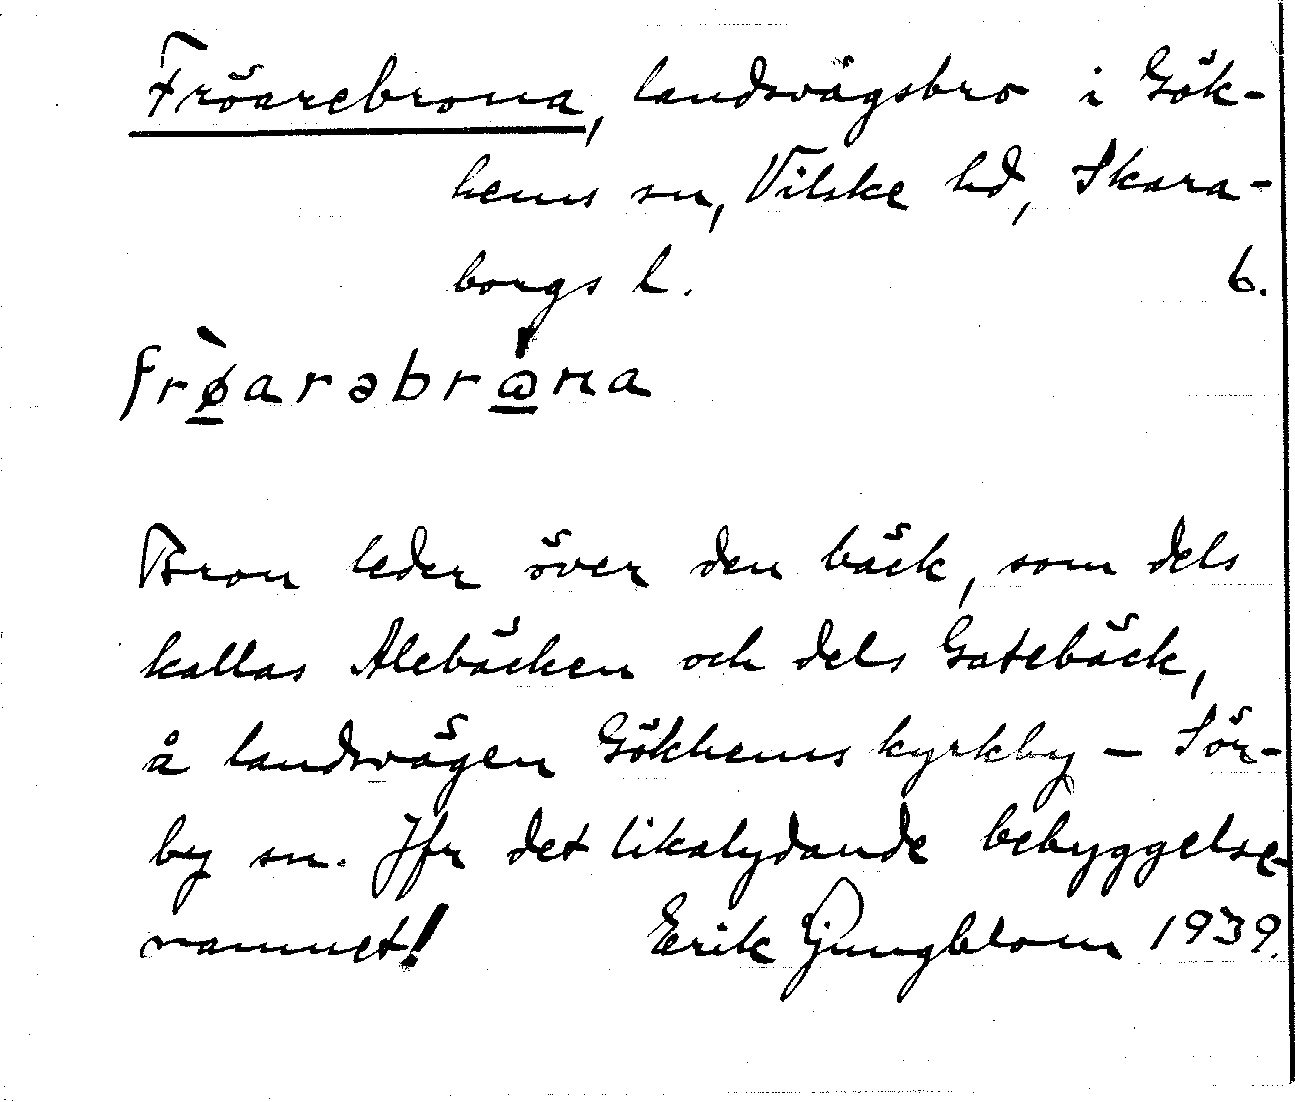 Fröarebrona, landsvägsbro i Gök-
hems sn, Vilske hd, Skara-
borgs l. 6.
frø̱̀arəbrⱺ̱́na
Bron leder över den bäck, som dels
kallas Alebäcken och dels Gatebäck,
å landsvägen Gökhems kyrkby – Sör-
by sn. Jfr det likalydande bebyggelse-
namnet! Erik Ljungblom 1939.